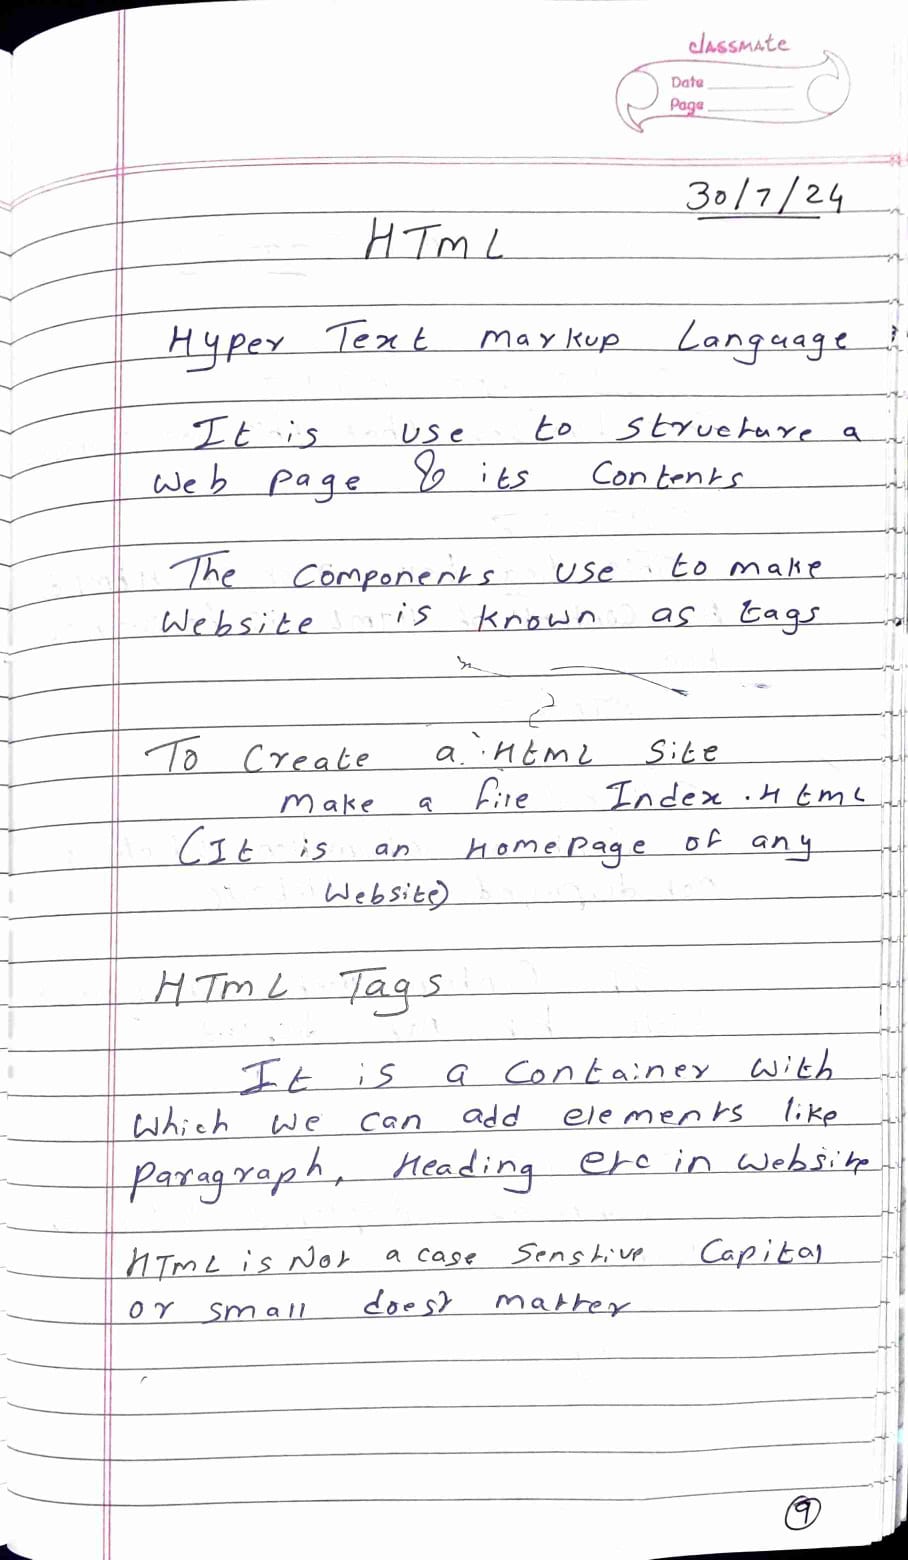 classmate
Date
Page
30/7/24
HTmL
Hyper Text markup Language
It is use to structure a
web page & its Contents
The Components use to make
Website is known as tags
To Create a Html Site
make a file Index.Html
(It is an Homepage of any
Website)
HTmL Tags
It is a Container with
which we can add elements like
Paragraph, Heading etc in website
HTmL is Not a case Senstive Capital
or small doest matter
9